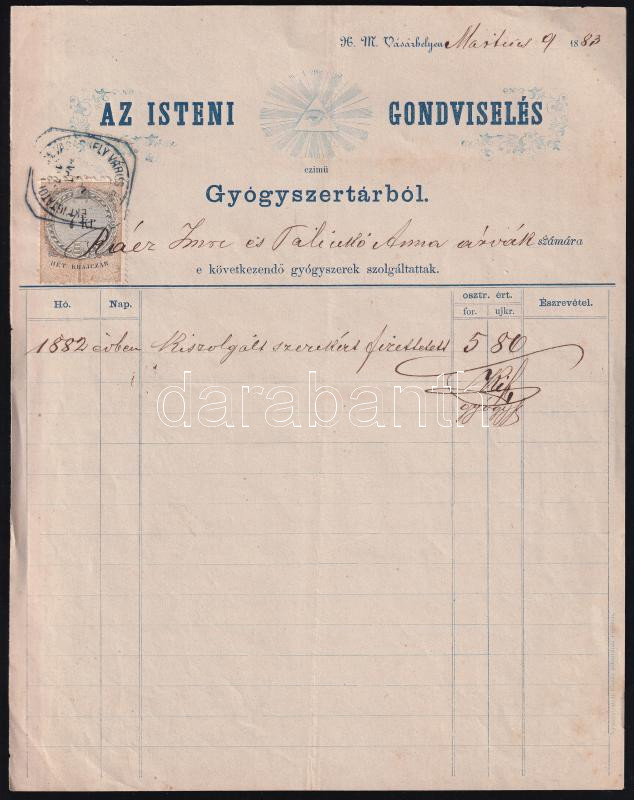 H. M. Vásárhelyen Martius 9 1883
AZ ISTENI GONDVISELÉS
czimü
Gyógyszertárból.
HÉT KRAJCZÁR
Imre és Anna árvák számára
e következendő gyógyszerek szolgáltattak.
Hó. Nap. osztr. ért. Észrevétel.
for. ujkr.
1882 évben Kiszolgált szerekért fizettetett 5 80
darabanth
gyógysz